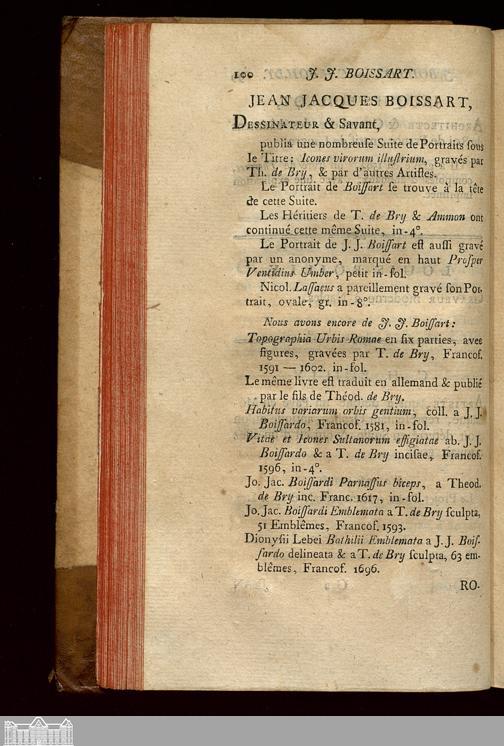 100 J. J. BOISSART.
JEAN JACQUES BOISSART,
DESSINATEUR & Savant,
publia une nombreuſe Suite de Portraits ſous
le Titre: Icones virorum illuſtrium, gravés par
Th. de Bry, & par d'autres Artiſtes.
Le Portrait de Boiſſart ſe trouve à la tête
de cette Suite.
Les Héritiers de T. de Bry & Ammon ont
continué cette même Suite, in-4°.
Le Portrait de J. J. Boiſſart eſt auſſi gravé
par un anonyme, marqué en haut Proſper
Ventidius Umber, petit in-fol.
Nicol. Laſſaeus a pareillement gravé ſon Por-
trait, ovale, gr. in-8°.
Nous avons encore de J. J. Boiſſart:
Topographia Urbis Romae en ſix parties, avec
figures, gravées par T. de Bry, Francof.
1591 — 1602. in-fol.
Le même livre eſt traduit en allemand & publié
par le fils de Théod. de Bry.
Habitus variarum orbis gentium, coll. a J. J.
Boiſſardo, Francof. 1581, in-fol.
Vitae et Icones Sultanorum effigiatae ab. J. J.
Boiſſardo & a T. de Bry inciſae, Francof.
1596, in-4°.
Jo. Jac. Boiſſardi Parnaſſus biceps, a Theod.
de Bry inc. Franc. 1617, in-fol.
Jo. Jac. Boiſſardi Emblemata a T. de Bry ſculpta,
51 Emblêmes, Francof. 1593.
Dionyſii Lebei Bathilii Emblemata a J. J. Boiſ-
ſardo delineata & a T. de Bry ſculpta, 63 em-
blêmes, Francof. 1696.
RO-